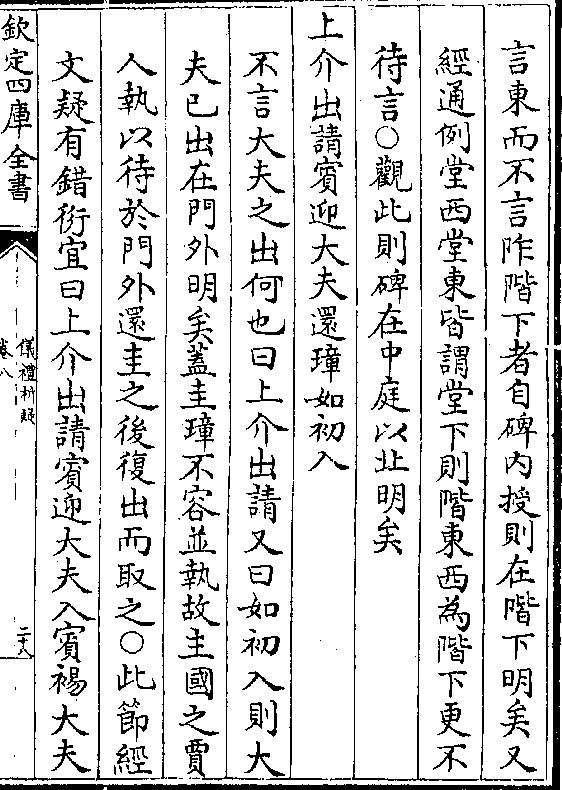 言東而不言阼階下者自碑内授則在階下明矣又
經通例堂西堂東皆謂堂下則階東西為階下更不
待言○觀此則碑在中庭以北明矣
上介出請賓迎大夫還璋如初入
不言大夫之出何也曰上介出請又曰如初入則大
夫已出在門外明矣蓋圭璋不容並執故主國之賈
人執以待於門外還圭之後復出而取之○此節經
文疑有錯衍宜曰上介出請賓迎大夫入賓裼大夫
欽定四庫全書
儀禮析疑
卷八
二十八